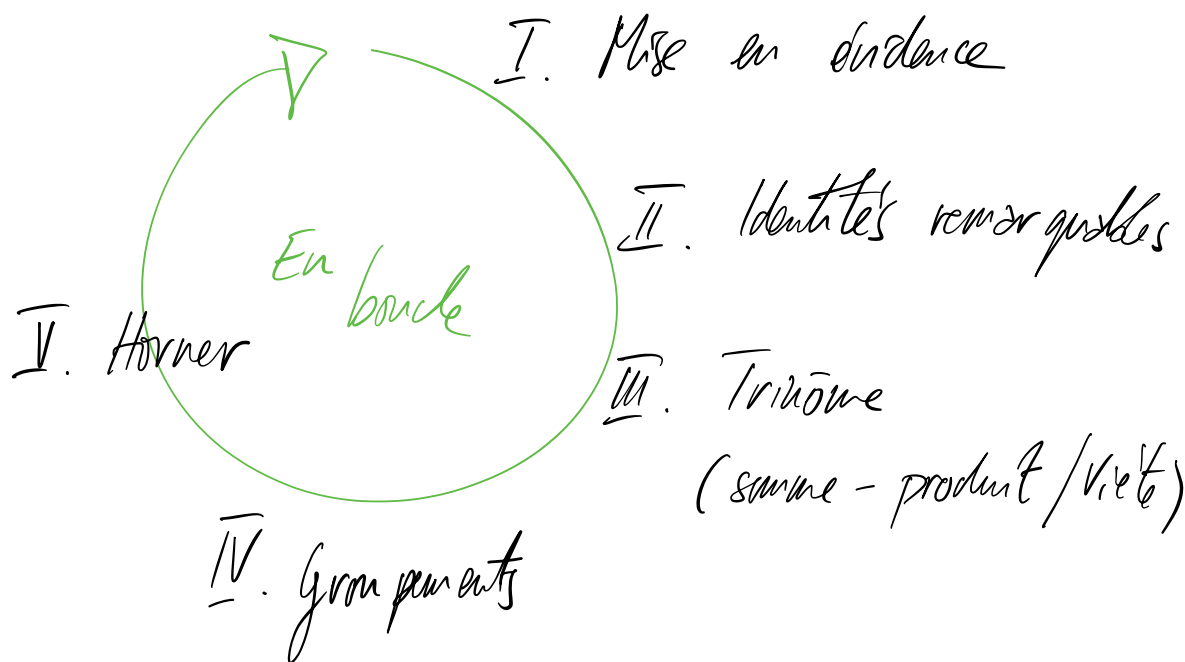 I. Mise en évidence
II. Identités remarquables
III. Trinôme
(somme - produit / Viète)
IV. Groupements
V. Horner
En
boucle